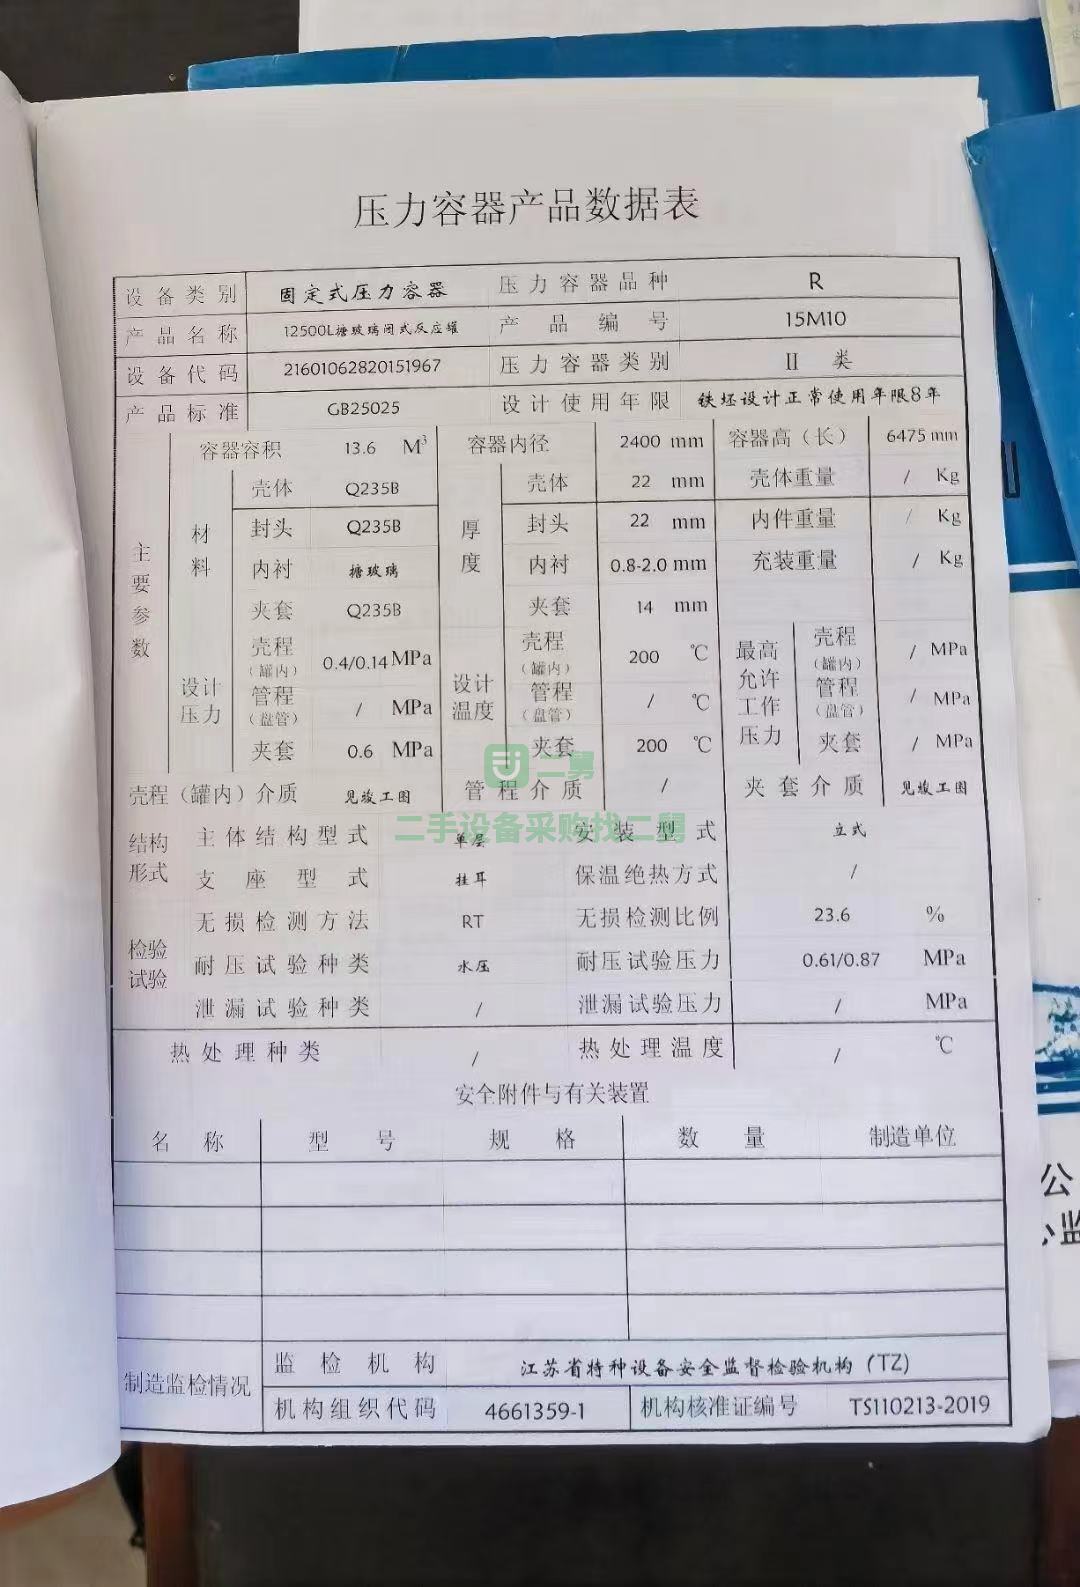 压力容器产品数据表
设备类别 固定式压力容器 压力容器品种 R
产品名称 12500L搪玻璃闭式反应罐 产品编号 15M10
设备代码 21601062820151967 压力容器类别 II 类
产品标准 GB25025 设计使用年限 铁坯设计正常使用年限8年
主要参数
容器容积 13.6 M³ 容器内径 2400 mm 容器高（长） 6475 mm
材料 壳体 Q235B 厚度 壳体 22 mm 壳体重量 / Kg
封头 Q235B 封头 22 mm 内件重量 / Kg
内衬 搪玻璃 内衬 0.8-2.0 mm 充装重量 / Kg
夹套 Q235B 夹套 14 mm
设计压力 壳程（罐内） 0.4/0.14 MPa 设计温度 壳程（罐内） 200 ℃ 最高允许工作压力 壳程（罐内） / MPa
管程（盘管） / MPa 管程（盘管） / ℃ 管程（盘管） / MPa
夹套 0.6 MPa 夹套 200 ℃ 夹套 / MPa
壳程（罐内）介质 见竣工图 管程介质 / 夹套介质 见竣工图
结构形式 主体结构型式 单层 安装型式 立式
支座型式 挂耳 保温绝热方式 /
检验试验 无损检测方法 RT 无损检测比例 23.6 %
耐压试验种类 水压 耐压试验压力 0.61/0.87 MPa
泄漏试验种类 / 泄漏试验压力 / MPa
热处理种类 / 热处理温度 / ℃
安全附件与有关装置
名称 型号 规格 数量 制造单位
制造监检情况 监检机构 江苏省特种设备安全监督检验机构（TZ）
机构组织代码 4661359-1 机构核准证编号 TS110213-2019
二舅
二手设备采购找二舅
公
心监